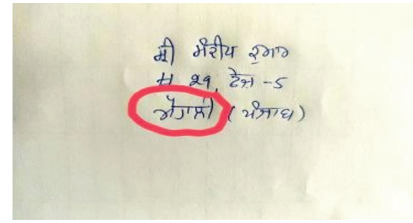 ਸ਼੍ਰੀ ਸੰਦੀਪ ਕੁਮਾਰ
ਮ 29, ਫੇਜ਼ -5
ਮੋਹਾਲੀ (ਪੰਜਾਬ)